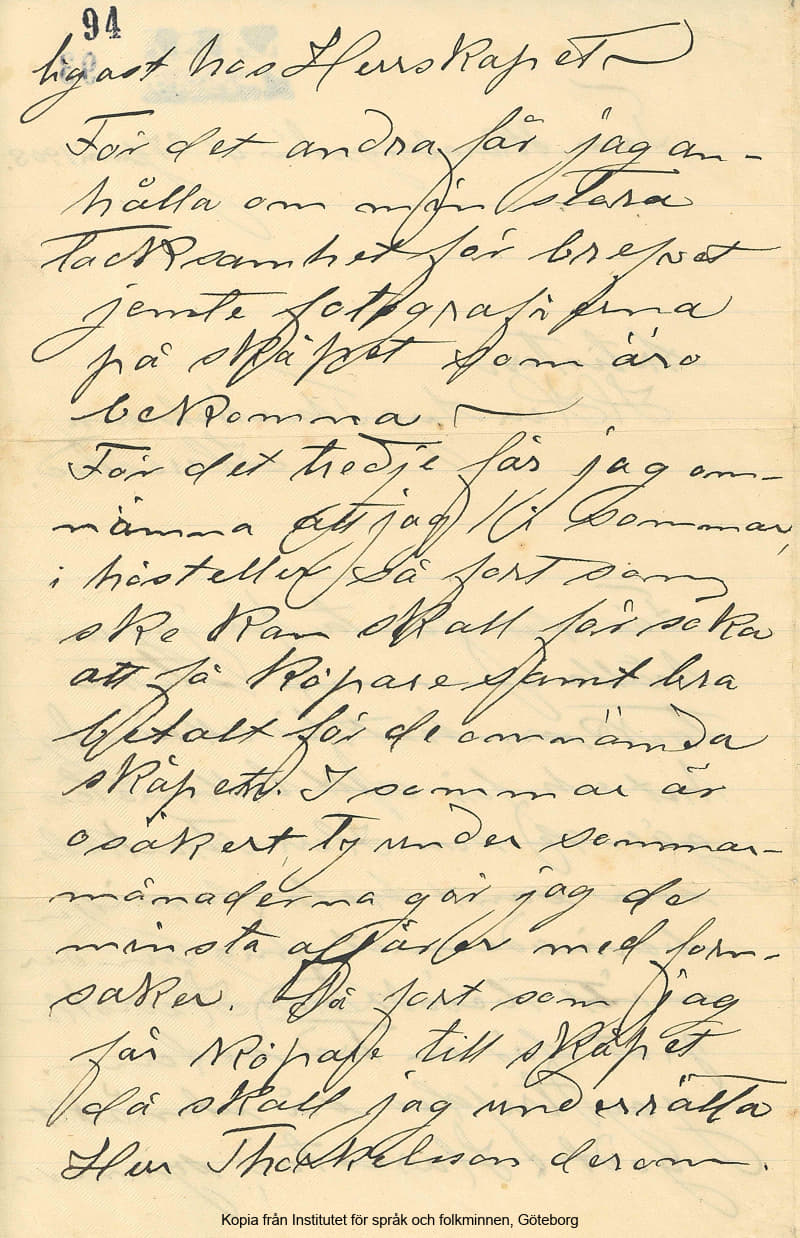 94
ligast hos Herrskapet
För det andra får jag an-
hålla om min stora
tacksamhet för brefvet
jemte fotografierna
på skåpet som äro
bekomna.
För det tredje får jag om-
nämna att jag i sommar,
i höst eller så fort som
ske kan skall försöka
att få köpare samt bra
betalt för de omnämda
skåpet. I sommar är
osäkert, ty under sommar-
månaderna gör jag de
minsta affärer med forn-
saker. Så fort som jag
får köpare till skåpet
då skall jag underrätta
Herr Thorkelsson derom.
Kopia från Institutet för språk och folkminnen, Göteborg